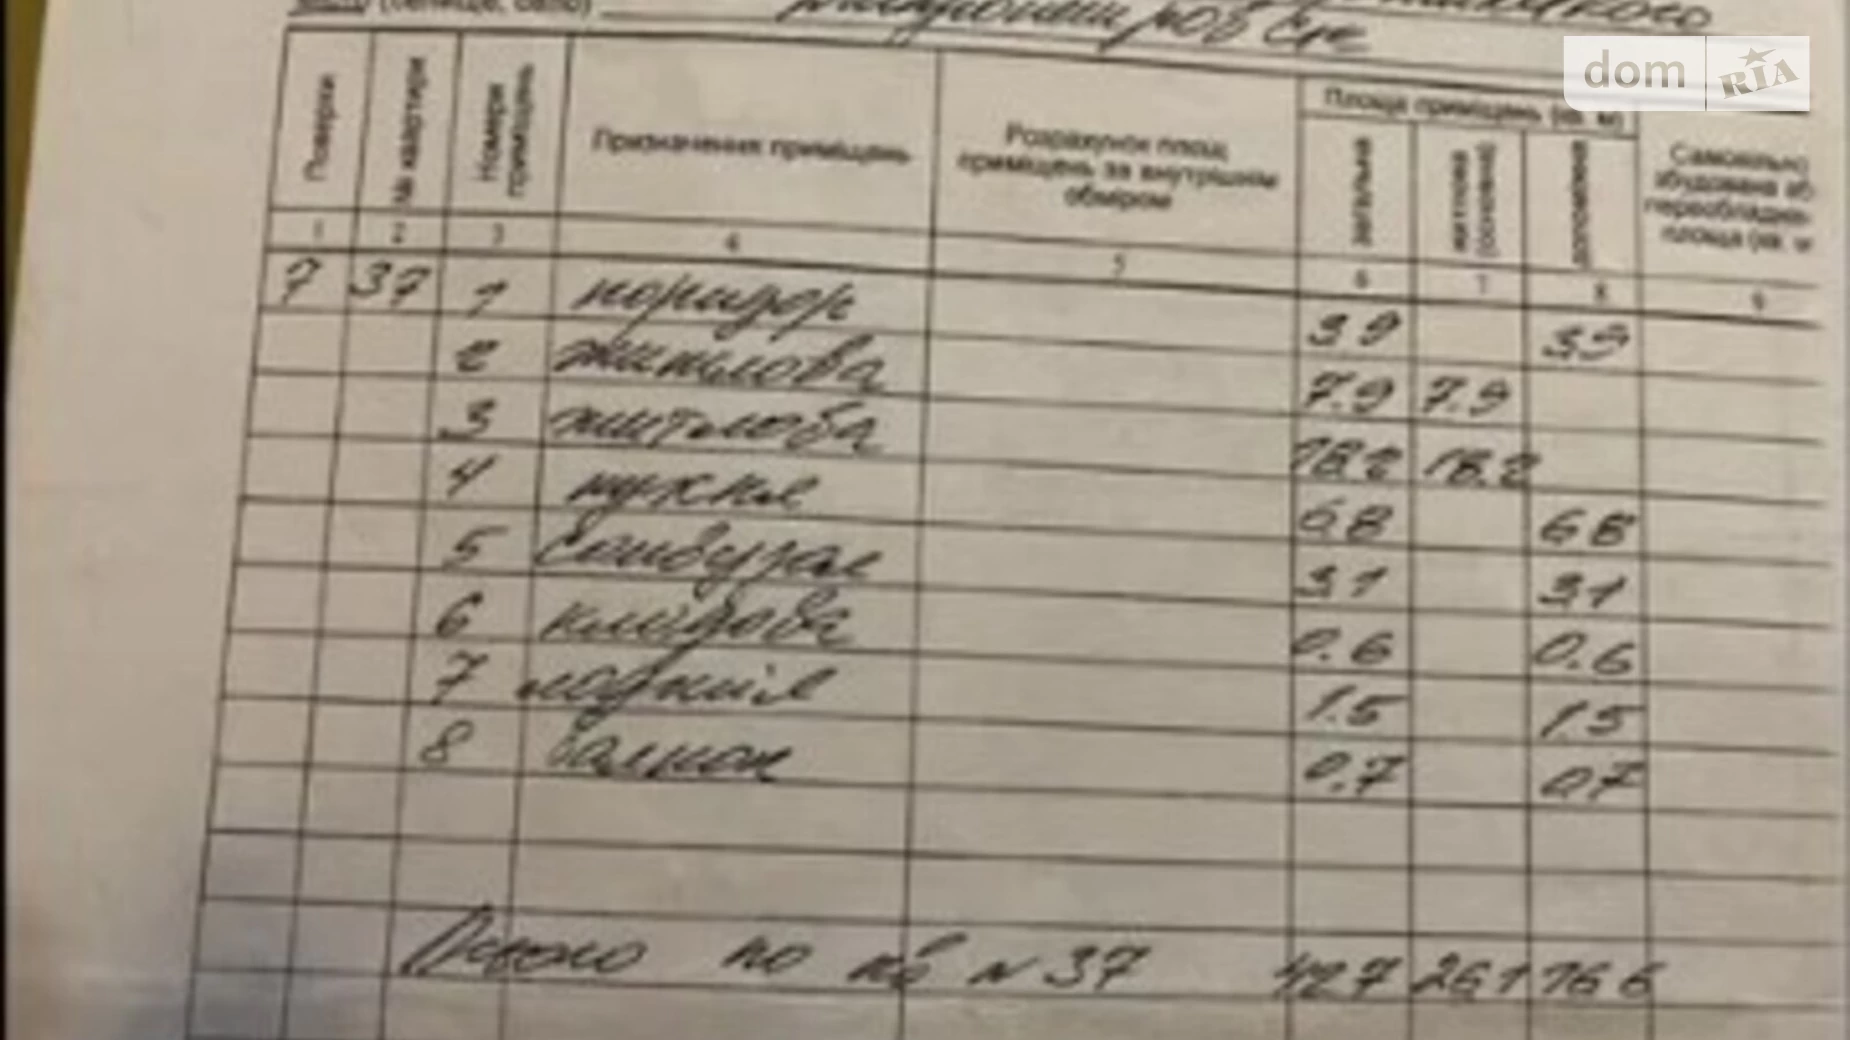 (селище, село)
dom RIA
Поверхи
№ квартири
Номери приміщень
Призначення приміщень
Розрахунок площ приміщень за внутрішнім обміром
Площа приміщень (кв. м)
загальна
житлова (основна)
допоміжна
Самовільно
площа (кв. м
1 2 3 4 5 6 7 8 9
7 37 1 коридор 3.9 3.9
2 житлова 7.9 7.9
3 житлова 18.2 18.2
4 кухня 6.8 6.8
5 санвузол 3.1 3.1
6 кладова 0.6 0.6
7 лоджія 1.5 1.5
8 балкон 0.7 0.7
Всього по кв N 37 42.7 26.1 16.6